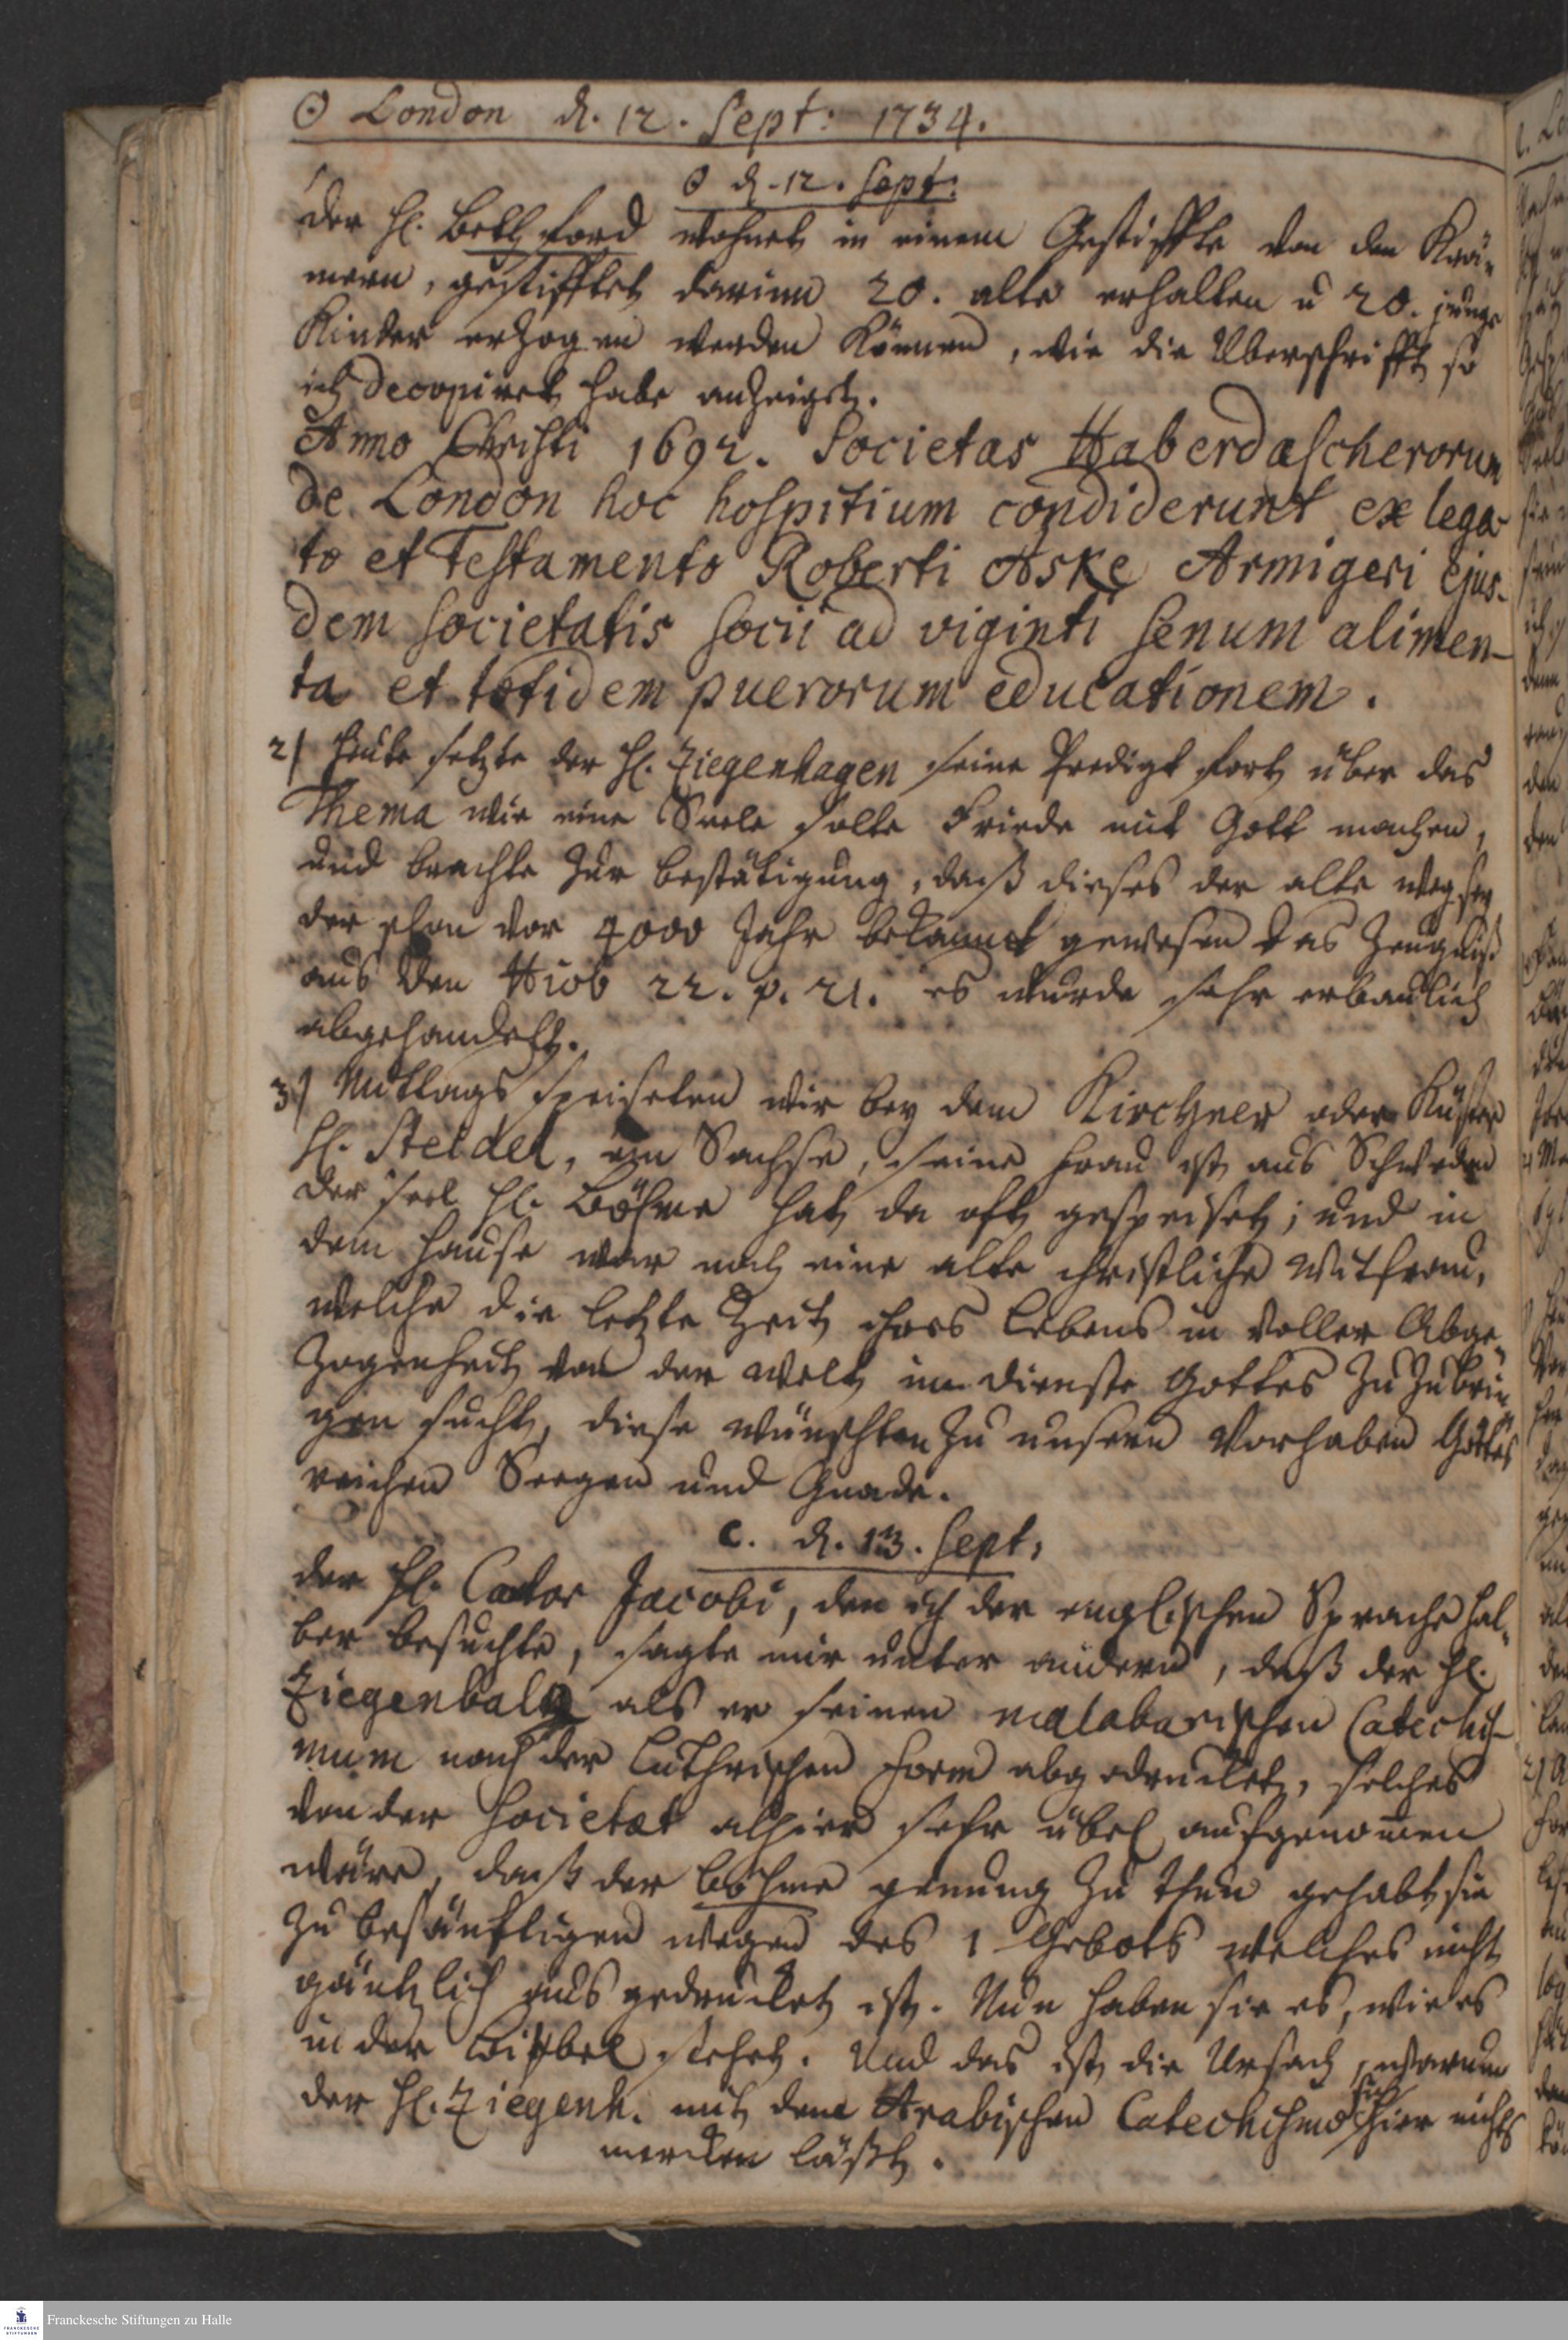 ☉ London d. 12. Sept: 1734.
☉ d. 12. Sept:
der H. Bettford wohnet in einem Gestiffte von den Krä-
mern, gestifftet darinn 20. alte erhalten u 20. junge
Kinder erzogen werden können, wie die Uberschrifft so
ich decopiret habe anzeiget.
Anno Christi 1692. Societas Haberdascherorum
de London hoc hospitium condiderunt ex lega-
to et Testamento Roberti Aske Armigeri ejus-
dem societatis socii ad viginti senum alimen-
ta et totidem puerorum educationem.
2) Heute setzte der H. Ziegenhagen seine Predigt fort über das
Thema wie eine Seele solte Friede mit Gott machen,
und brachte zur bestätigung, daß dieses der alte weg sey
der schon vor 4000 Jahr bekannt gewesen das Zeugniß
aus den Hiob 22. v. 21. es wurde sehr erbaulich
abgehandelt.
3) Mittags speiseten wir bey dem Kirchner oder Küster
H. Steidel, ein Sachse, seine Frau ist aus Schweden
der seel H. Böhme hat da oft gespeiset; und in
dem Hause war noch eine alte christliche Witfrau,
welche die letzte Zeit ihres Lebens in voller Abge-
zogenheit von der Welt im dienste Gottes zu zubrin-
gen sucht, diese wünschten zu unsern Vorhaben Gottes
reichen Seegen und Gnade.
C. d. 13. Sept:
der H. Cantor Jacobi, den ich der englischen Sprache hal-
ber besuchte, sagte mir unter andern, daß der H.
Ziegenbalg als er seinen malabarischen Catechis-
mum nach der Luthrischen Form abgedrucket, solches
von der Societæt alhier sehr übel aufgenomen
wäre, daß der Böhme genung zu thun gehabt sie
zu besänftigen wegen des 1 Gebots welches nicht
gäntzlich ausgedrucket ist. Nun haben sie es, wie es
in der Bibel stehet. Und das ist die Ursach, warum
der H. Ziegenh. mit dem Arabischen Catechismo sich hier nichts
mercken läßt.
Franckesche Stiftungen zu Halle